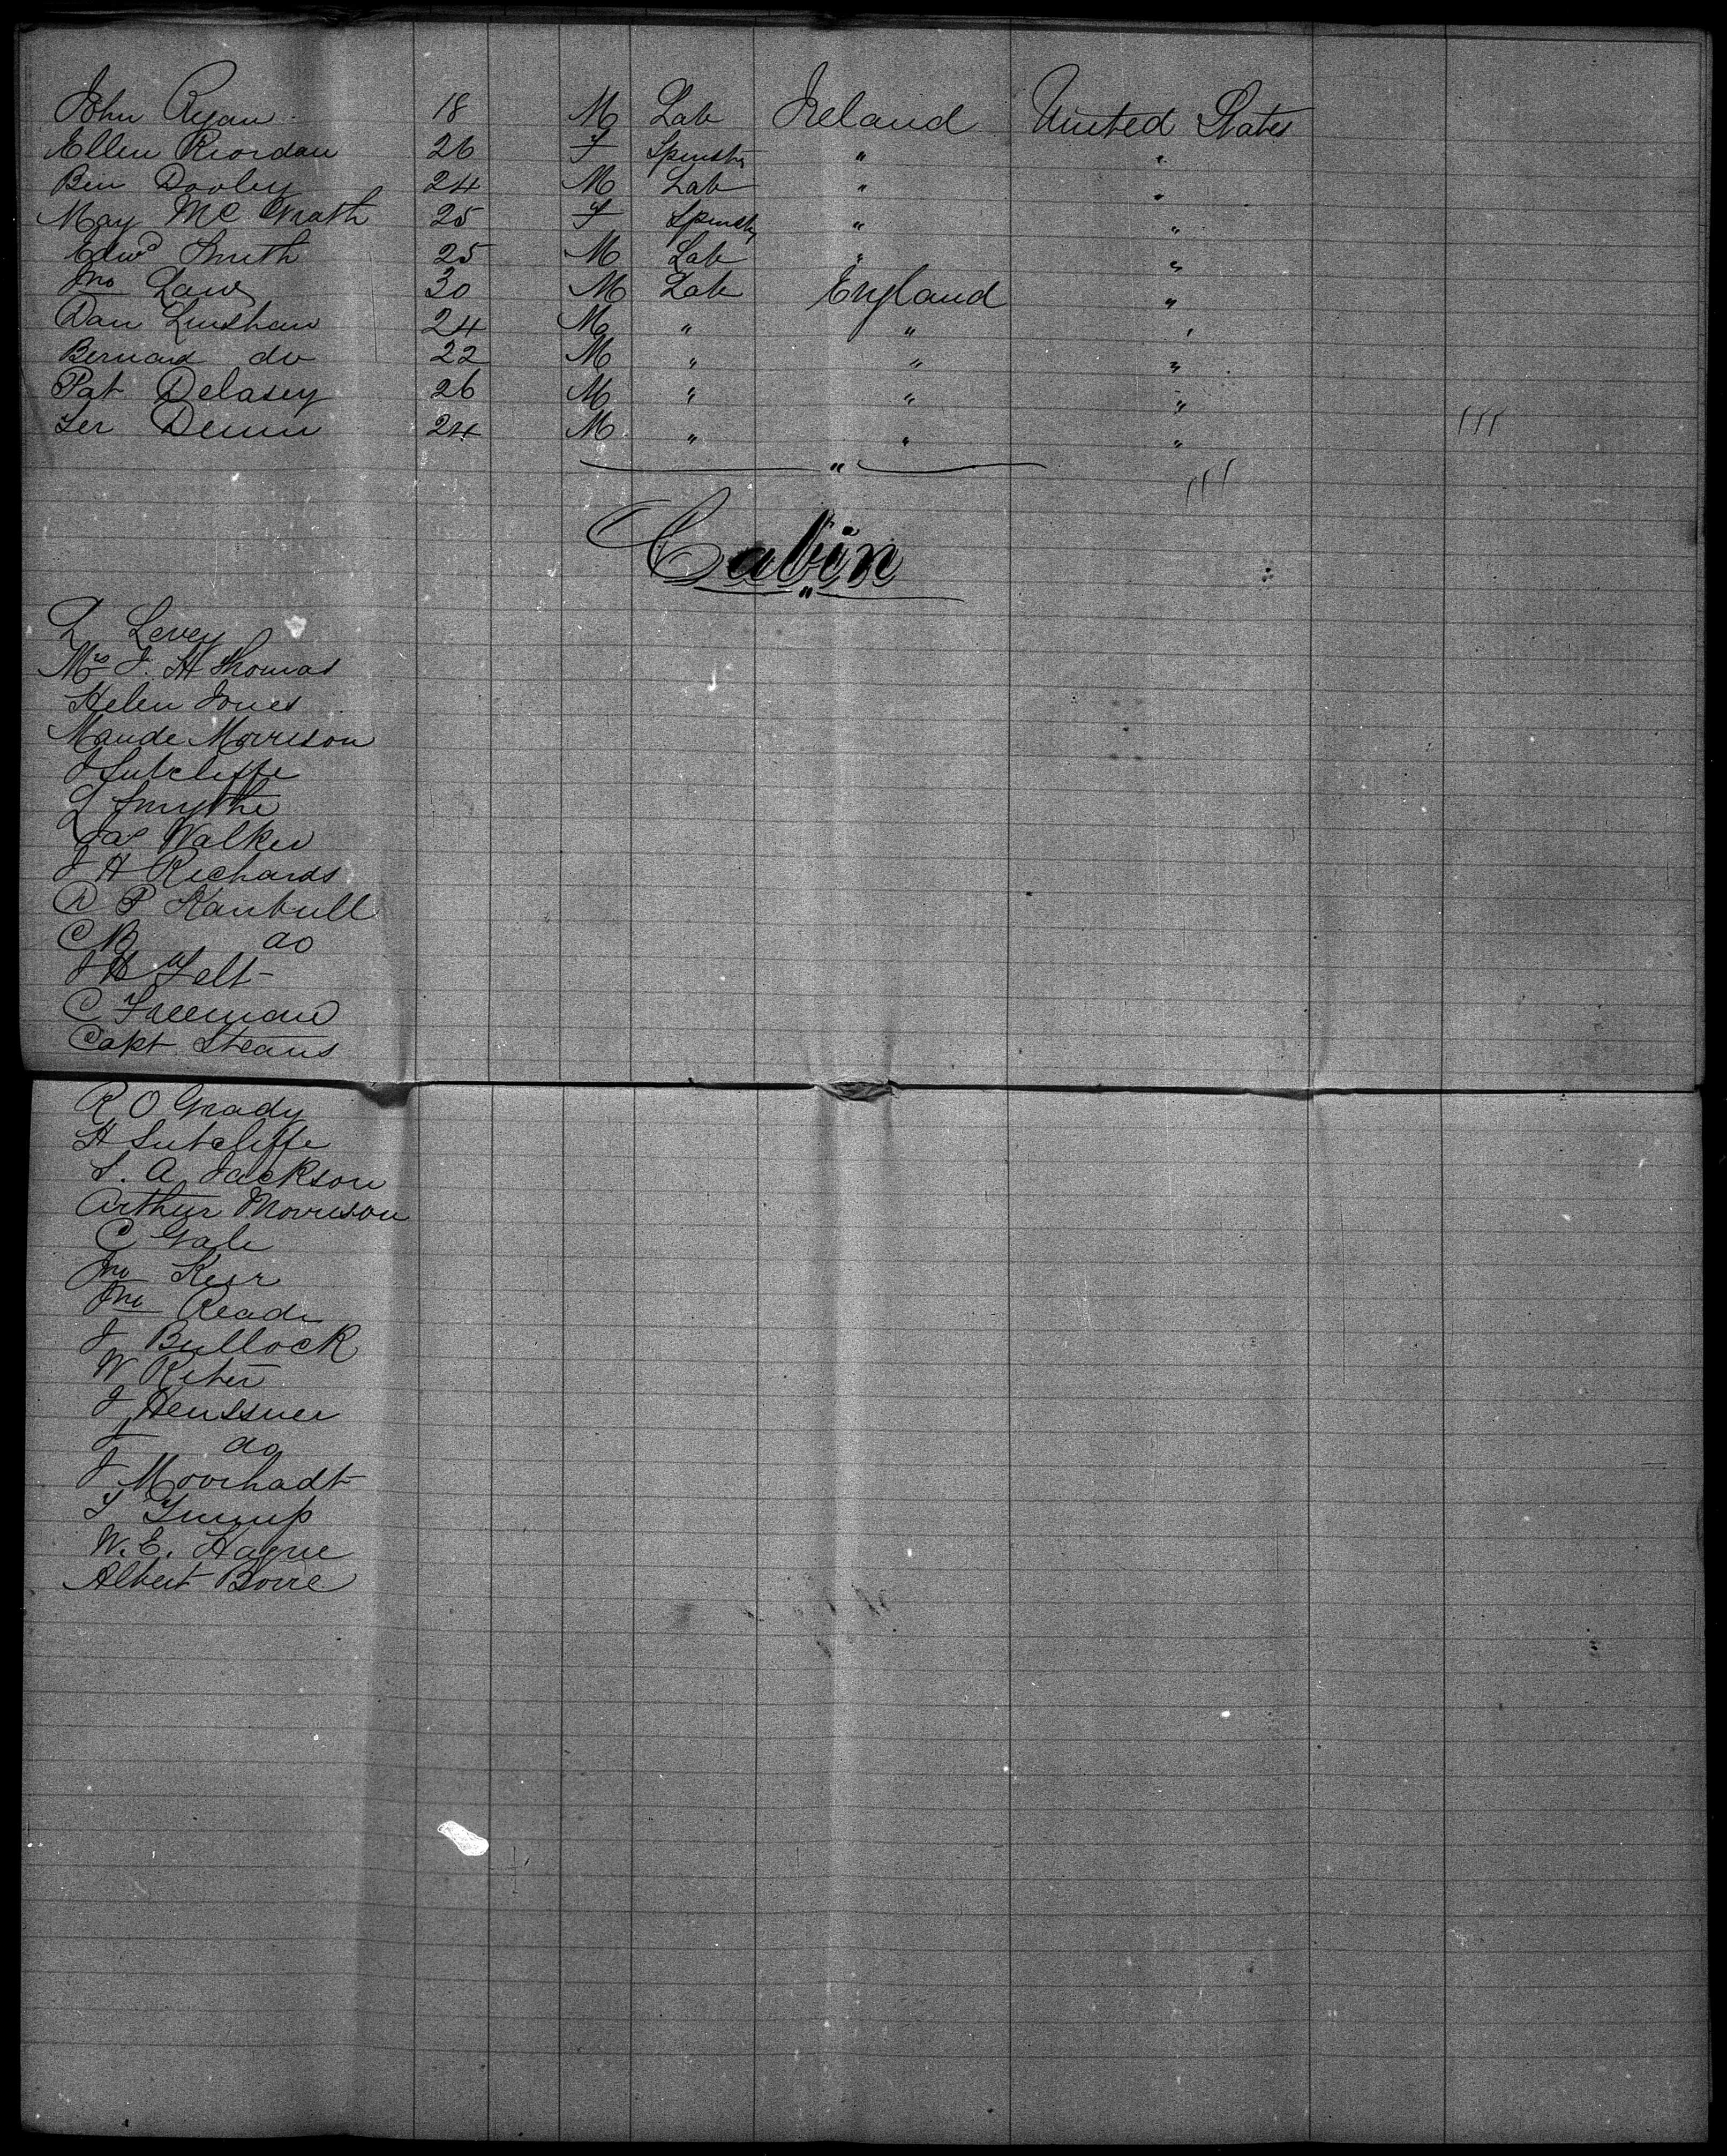 John Ryan 18 M Lab Ireland United States
Ellen Riordan 26 F Spinstr " "
Ben Dooley 24 M Lab " "
May Mc Grath 25 F Spinstr " "
Edwd Smith 25 M Lab " "
Jno Laws 30 M Lab England "
Dan Linshan 24 M " " "
Bernard do 22 M " " "
Pat Delasey 26 M " " "
24 M " " "
"
Cabin
L Levey
Mrs J. H Thomas
Helen Jones
Maude Morrison
J Sutcliffe
L Smythe
Jas Walker
J H Richards
C B do
C Freeman
Capt Steans
R O Grady
H Sutcliffe
S. A Jackson
Arthur Morrison
C Gale
Jno Keir
Jno Reade
J Bullock
W Riter
J Heussner
do
J Moorhadt
W. E. Hague
Albert